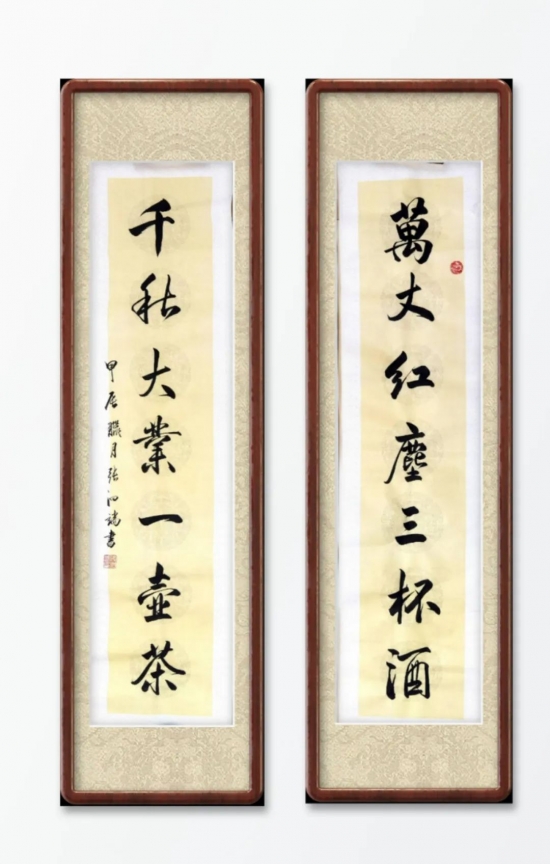 萬丈红塵三杯酒
千秋大業一壺茶
甲辰臘月張泗瑞書